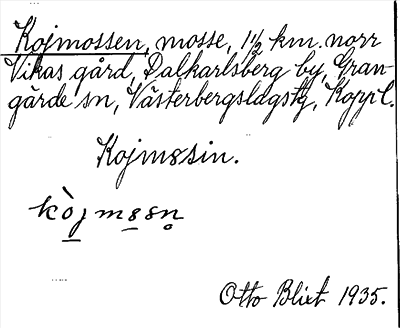 Kojmossen, mosse, 1½ km. norr
Vikas gård, Dalkarlsberg by, Gran-
gärde sn, Västerbergslags tg, Koppl.
Kojmosin.
kòjmosn̥
Otto Blixt 1935.